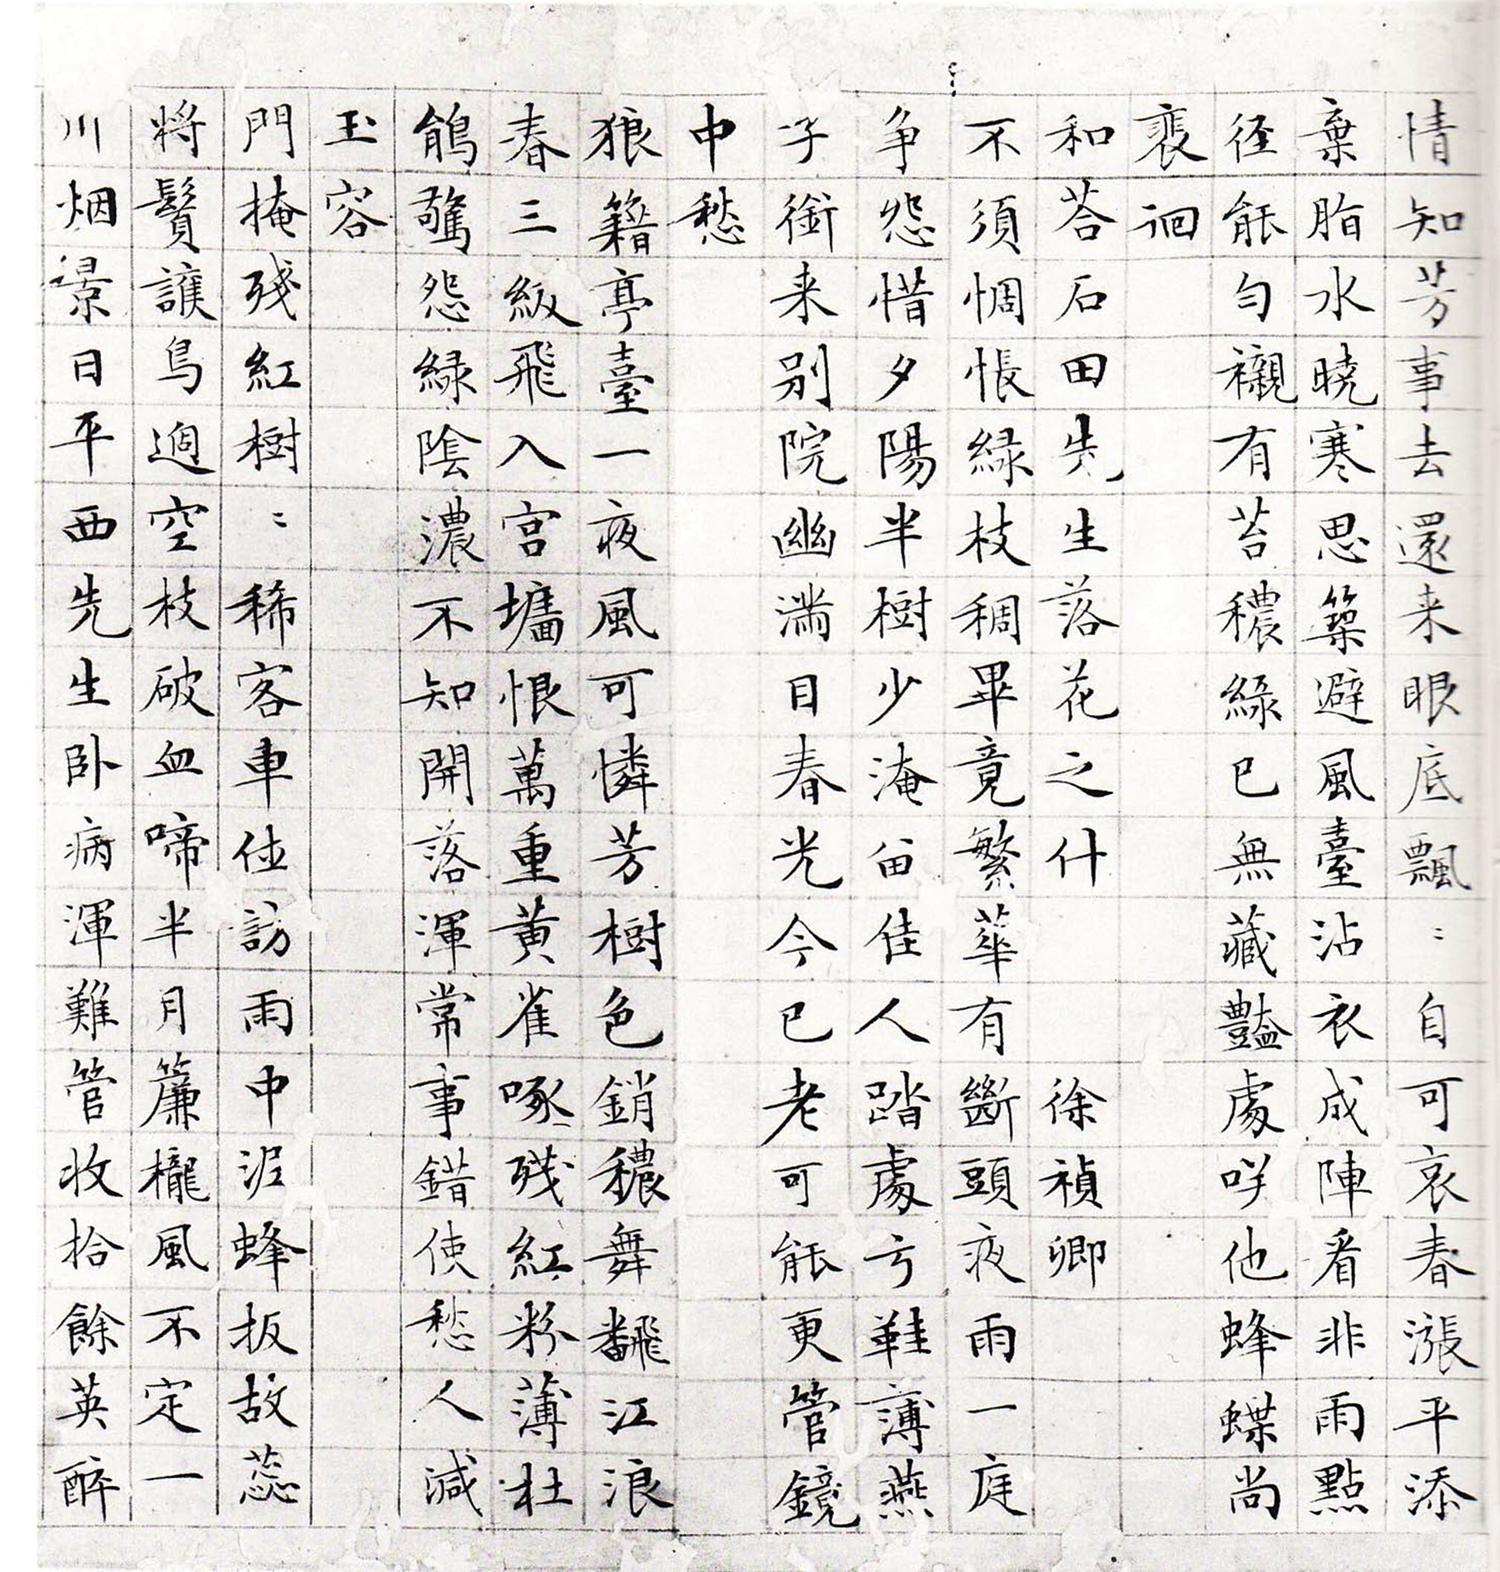 情知芳事去還来眼底飄〻自可哀春漲平添
棄脂水曉寒思築避風臺沾衣成陣看非雨點
径能勻襯有苔穠綠已無藏豔處咲他蜂蝶尚
裵徊
和荅石田先生落花之什 徐禎卿
不須惆悵緑枝稠畢竟繁華有斷頭夜雨一庭
争怨惜夕陽半樹少淹留佳人踏處弓鞋薄燕
子銜来別院幽滿目春光今已老可能更管鏡
中愁
狼籍亭臺一夜風可憐芳樹色銷穠舞飜江浪
春三級飛入宫墻恨萬重黄雀啄殘紅粉薄杜
鵑驚怨緑陰濃不知開落渾常事錯使愁人減
玉容
門掩殘紅樹〻稀客車徃訪雨中泥蜂扳故蕊
将鬚護鳥遶空枝破血啼半月簾櫳風不定一
川烟景日平西先生卧病渾難管收拾餘英醉